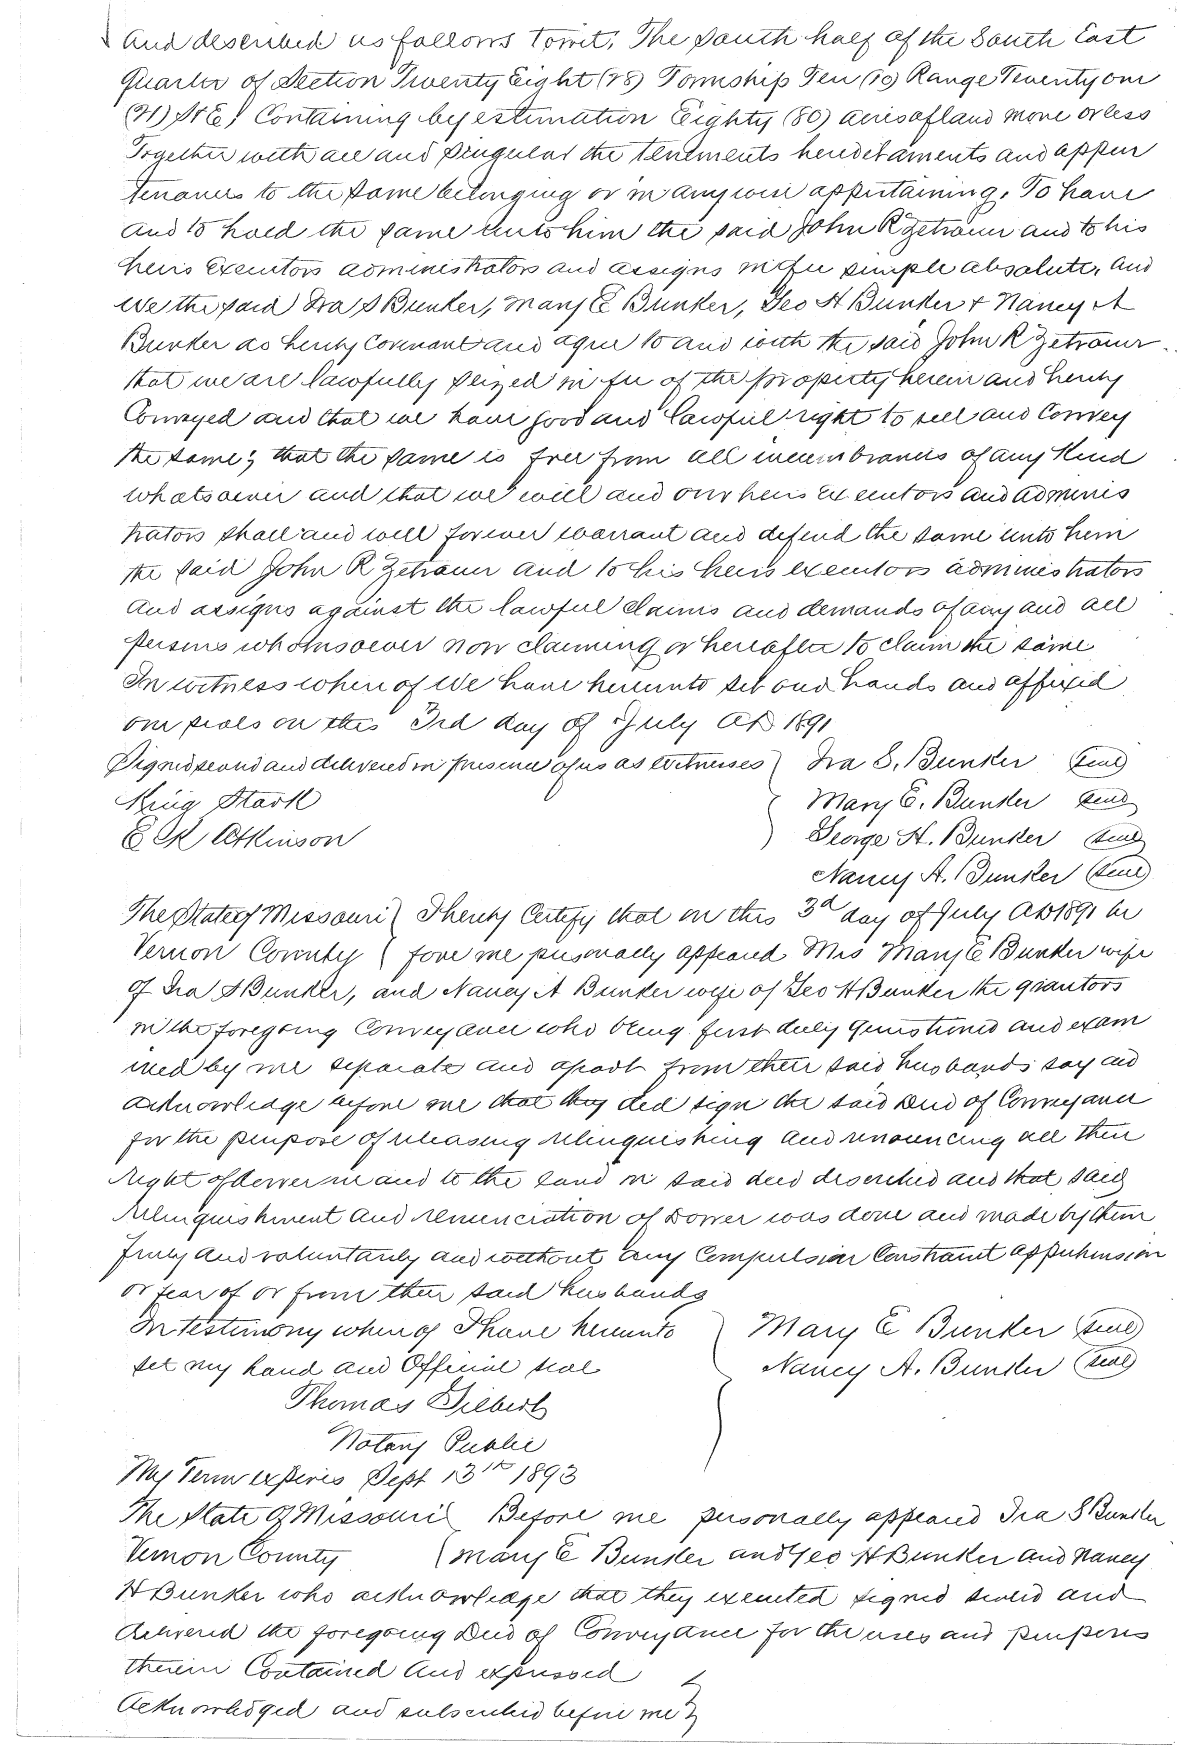 and described as follows towit, The South half of the South East
Quarter of Section Twenty Eight (28) Township Ten (10) Range Twenty one
(21) S & E) Containing by estimation Eighty (80) acres of land more or less
Together with all and singular the tenements hereditaments and appur
tenances to the same belonging or in anywise appertaining, To have
and to hold the same unto him the said John R Zetrouer and to his
heirs Executors administrators and assigns in fee simple absolute, and
we the said Ira S Bunker, Mary E Bunker, Geo H Bunker & Nancy A
Bunker do hereby Covenant and agree to and with the said John R Zetrouer
that we are lawfully seized in fee of the property herein and hereby
Conveyed and that we have good and lawful right to sell and Convey
the same; that the same is free from all incumbrances of any Kind
whatsoever and that we will and our heirs executors and adminis
trators shall and will forever warrant and defend the same unto him
the said John R Zetrouer and to his heirs executors administrators
and assigns against the lawful claims and demands of any and all
persons whomsoever now claiming or hereafter to claim the same
In witness whereof We have hereunto set our hands and affixed
our seals on this 3rd day of July AD 1891
Signed seald and delivered in presence of us as witnesses } Ira S. Bunker (seal)
King Stark } Mary E. Bunker (seal)
E K Atkinson } George H. Bunker (seal)
Nancy A. Bunker (seal)
The State of Missouri } I hereby Certify that on this 3d day of July AD 1891 be
Vernon County } fore me personally appeared Mrs Mary E Bunker wife
of Ira S Bunker, and Nancy A Bunker wife of Geo H Bunker the grantors
in the foregoing Conveyance who being first duly questioned and exam
ined by me separate and apart from their said husbands say and
acknowledge before me that they did sign the said Deed of Conveyance
for the purpose of releasing relinquishing and renouncing all their
right of dower in and to the land in said deed described and that said
relinquishment and renunciation of Dower was done and made by them
freely and voluntarily and without any Compulsion Constraint apprehension
or fear of or from their said husbands
In testimony whereof I have hereunto } Mary E Bunker (seal)
set my hand and Official seal } Nancy A. Bunker (seal)
Thomas Gilbert
Notary Public
My Term expires Sept 13th 1893
The State of Missouri } Before me personally appeared Ira S Bunker
Vernon County } Mary E Bunker and Geo H Bunker and Nancy
H Bunker who acknowledge that they executed signed sealed and
delivered the foregoing Deed of Conveyance for the uses and purposes
therein Contained and expressed
Acknowledged and subscribed before me }